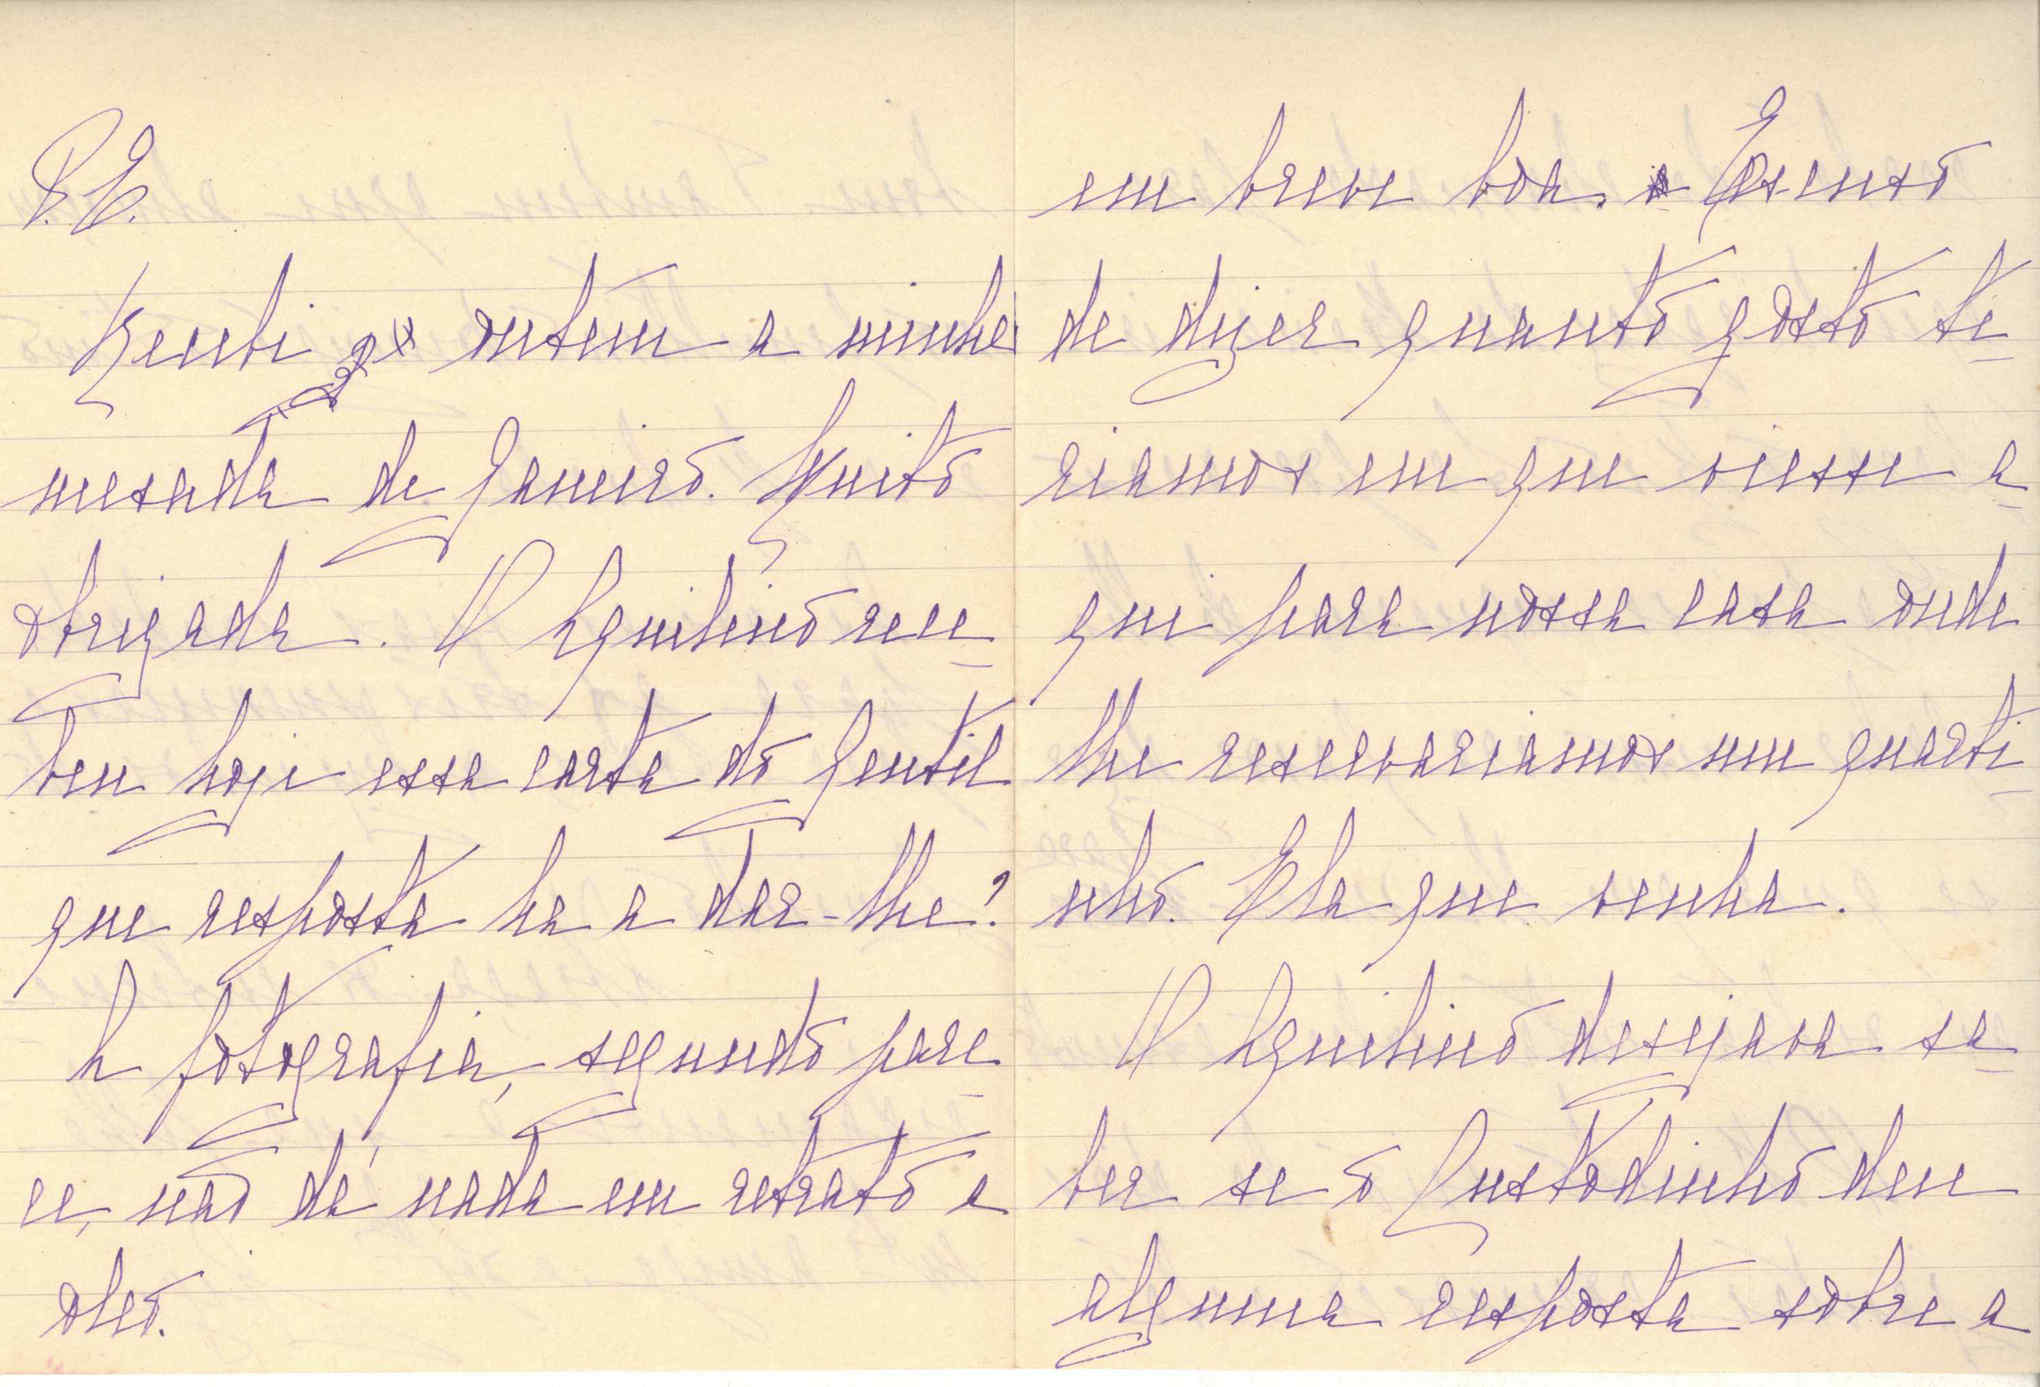 P.S.
Recebi ontem a minha
mesada de Janeiro. Muito
obrigada. O Aquilino rece
beu hoje essa carta do Gentil
que resposta ha a dar-lhe?
A fotografia, segundo pare
ce, não dá nada em retrato a
oleo.
em breve boa. Escuso
de dizer quanto gosto te-
riamos em que viesse a-
qui para nossa casa onde
lhe reservariamos um quarti-
nho. Ela que venha.
O Aquilino desejava sa-
ber se o Custodinho deu
alguma resposta sobre a